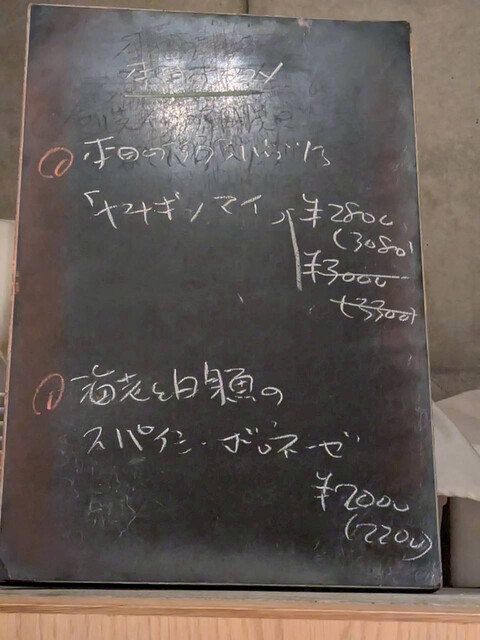 本日のおススメ
本日の
「ヤナギノマイ」 ¥2800
(3080)
¥3000
(3300)
海老と白身魚の
スパイシーボロネーゼ
¥2000
(2200)